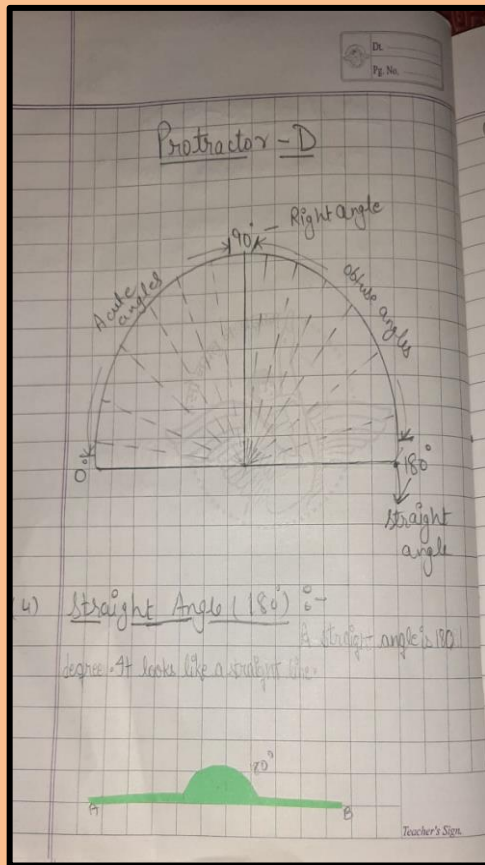 Dt.
Pg. No.
Protractor - D
90° - Right angle
Acute
angles
obtuse angles
0°
180°
straight
angle
4) Straight Angle (180°) :-
A straigt angle is 180
degree. It looks like a straight line.
180°
A
B
Teacher's Sign.